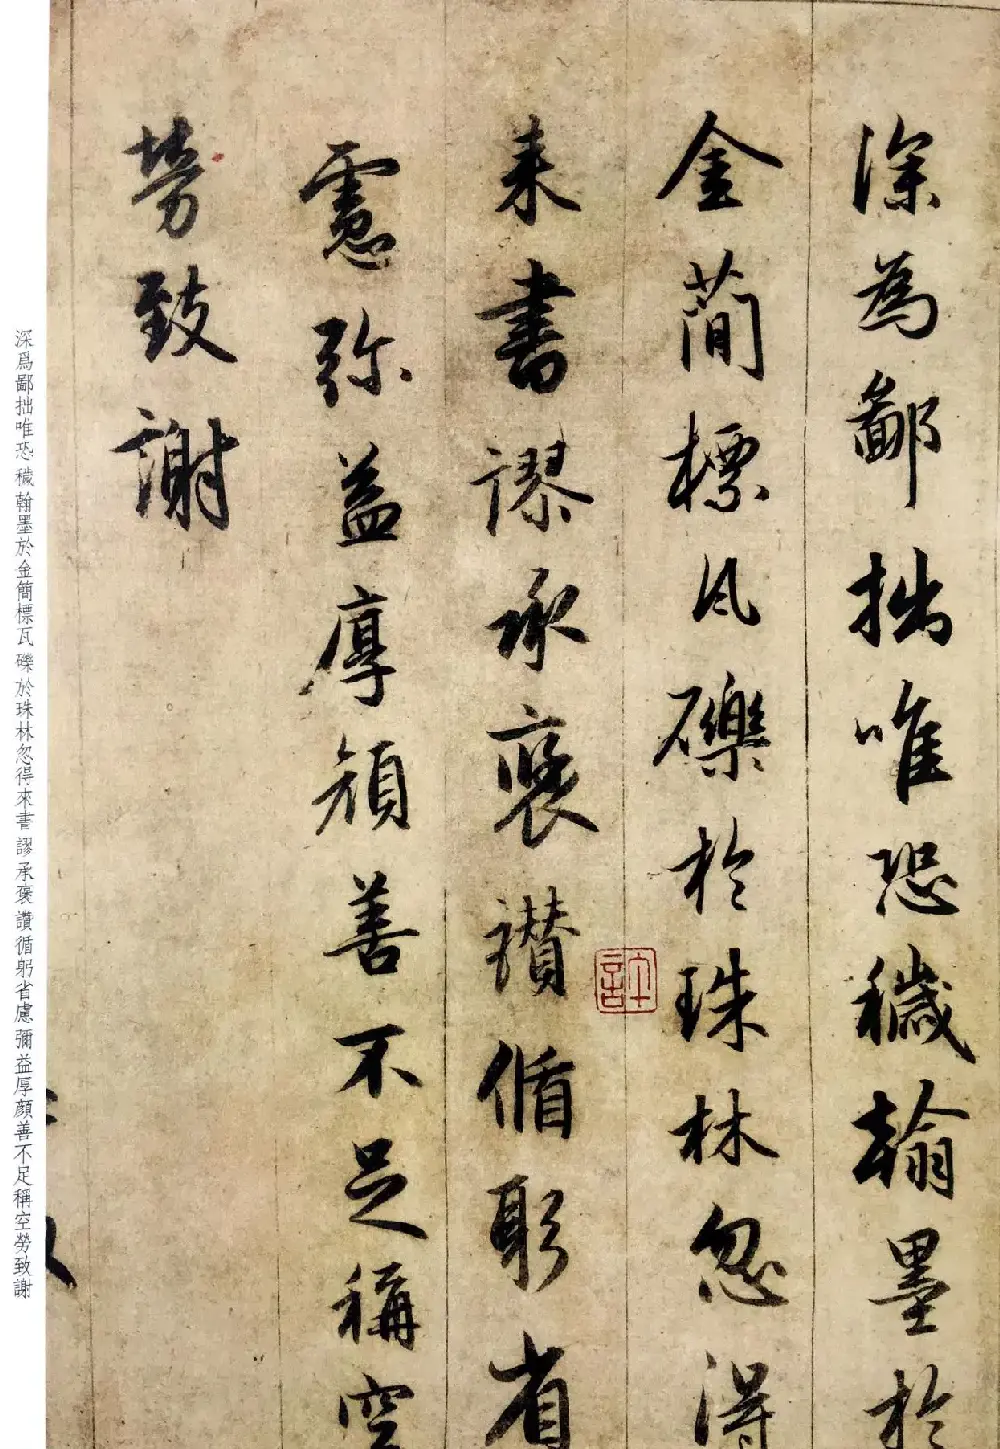 深為鄙拙唯恐穢翰墨於
金簡標瓦礫於珠林忽得
来書謬承褒讃循躬省
慮弥益厚顔善不足稱空
勞致謝
深爲鄙拙唯恐穢翰墨於金簡標瓦礫於珠林忽得來書謬承褒讚循躬省慮彌益厚顔善不足稱空勞致謝